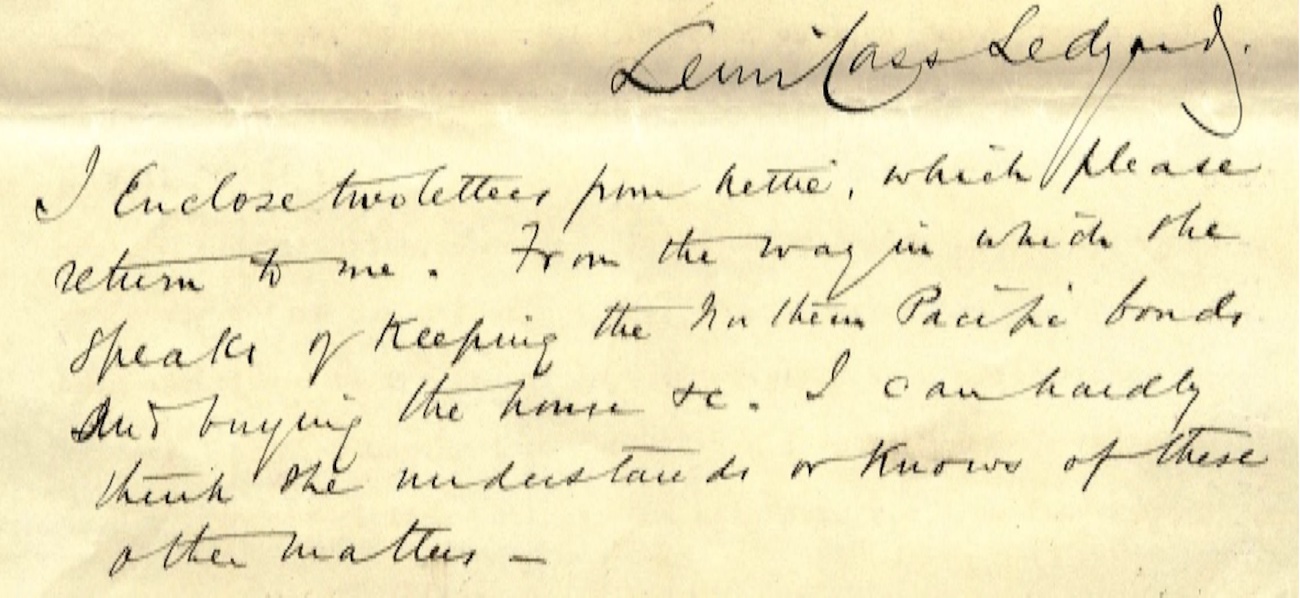 Lewis Cass Ledyard.
I Enclose two letters from Nettie, which please
return to me. From the way in which she
speaks of Keeping the Northern Pacific bonds
And buying the house &c. I can hardly
think she understands or knows of these
other matters –